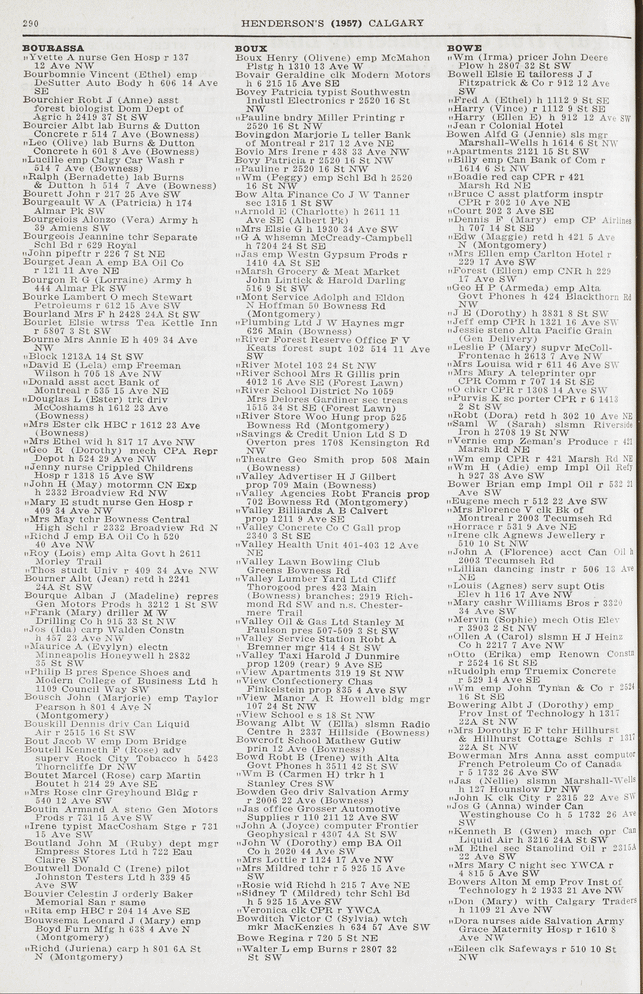 290
HENDERSON'S (1957) CALGARY
BOURASSA
„Yvette A nurse Gen Hosp r 137
12 Ave NW
Bourbonnie Vincent (Ethel) emp
DeSutter Auto Body h 606 14 Ave
SE
Bourchier Robt J (Anne) asst
forest biologist Dom Dept of
Agric h 2419 37 St SW
Bourcier Albt lab Burns & Dutton
Concrete r 514 7 Ave (Bowness)
„Leo (Olive) lab Burns & Dutton
Concrete h 601 8 Ave (Bowness)
„Lucille emp Calgy Car Wash r
514 7 Ave (Bowness)
„Ralph (Bernadette) lab Burns
& Dutton h 514 7 Ave (Bowness)
Bourett John r 217 25 Ave SW
Bourgeault W A (Patricia) h 174
Almar Pk SW
Bourgeois Alonzo (Vera) Army h
39 Amiens SW
Bourgeois Jeannine tchr Separate
Schl Bd r 629 Royal
„John pipeftr r 226 7 St NE
Bourget Jean A emp BA Oil Co
r 121 11 Ave NE
Bourgon R G (Lorraine) Army h
444 Almar Pk SW
Bourke Lambert O mech Stewart
Petroleums r 612 15 Ave SW
Bourland Mrs F h 2428 24A St SW
Bourlet Elsie wtrss Tea Kettle Inn
r 5807 3 St SW
Bourne Mrs Annie E h 409 34 Ave
NW
„Block 1213A 14 St SW
„David E (Lela) emp Freeman
Wilson h 705 18 Ave NW
„Donald asst acct Bank of
Montreal r 535 15 Ave NE
„Douglas L (Ester) trk driv
McCoshams h 1612 23 Ave
(Bowness)
„Mrs Ester clk HBC r 1612 23 Ave
(Bowness)
„Mrs Ethel wid h 817 17 Ave NW
„Geo R (Dorothy) mech CPA Repr
Depot h 524 29 Ave NW
„Jenny nurse Crippled Childrens
Hosp r 1318 15 Ave SW
„John H (May) motormn CN Exp
h 2332 Broadview Rd NW
„Mary E studt nurse Gen Hosp r
409 34 Ave NW
„Mrs May tchr Bowness Central
High Schl r 2332 Broadview Rd N
„Richd J emp BA Oil Co h 520
40 Ave NW
„Roy (Lois) emp Alta Govt h 2611
Morley Trail
„Thos studt Univ r 409 34 Ave NW
Bourner Albt (Jean) retd h 2241
24A St SW
Bourque Alban J (Madeline) repres
Gen Motors Prods h 3212 1 St SW
„Frank (Mary) driller M W
Drilling Co h 915 33 St NW
„Jos (Ida) carp Walden Constn
h 457 23 Ave NW
„Maurice A (Evylyn) electn
Minneapolis Honeywell h 2832
35 St SW
„Philip B pres Spence Shoes and
Modern College of Business Ltd h
1109 Council Way SW
Bousch John (Marjorie) emp Taylor
Pearson h 801 4 Ave N
(Montgomery)
Bouskill Dennis driv Can Liquid
Air r 2515 16 St SW
Bout Jacob W emp Dom Bridge
Boutell Kenneth F (Rose) adv
superv Rock City Tobacco h 5423
Thorncliffe Dr NW
Boutet Marcel (Rose) carp Martin
Boutet h 214 29 Ave SE
„Mrs Rose clnr Greyhound Bldg r
540 12 Ave SW
Boutin Armand A steno Gen Motors
Prods r 731 15 Ave SW
„Irene typist MacCosham Stge r 731
15 Ave SW
Boutland John M (Ruby) dept mgr
Empress Stores Ltd h 722 Eau
Claire SW
Boutwell Donald C (Irene) pilot
Johnston Testers Ltd h 339 45
Ave SW
Bouvier Celestin J orderly Baker
Memorial San r same
„Rita emp HBC r 204 14 Ave SE
Bouwsema Leonard J (Mary) emp
Boyd Furn Mfg h 638 4 Ave N
(Montgomery)
„Richd (Juriena) carp h 801 6A St
N (Montgomery)
BOUX
Boux Henry (Olivene) emp McMahon
Plstg h 1310 13 Ave W
Bovair Geraldine clk Modern Motors
h 6 215 15 Ave SE
Bovey Patricia typist Southwestn
Industl Electronics r 2520 16 St
NW
„Pauline bndry Miller Printing r
2520 16 St NW
Bovingdon Marjorie L teller Bank
of Montreal r 217 12 Ave NE
Bovio Mrs Irene r 438 33 Ave NW
Bovy Patricia r 2520 16 St NW
„Pauline r 2520 16 St NW
„Wm (Peggy) emp Schl Bd h 2520
16 St NW
Bow Alta Finance Co J W Tanner
sec 1315 1 St SW
„Arnold E (Charlotte) h 2611 11
Ave SE (Albert Pk)
„Mrs Elsie G h 1930 34 Ave SW
„G A whsemn McCready-Campbell
h 7204 24 St SE
„Jas emp Westn Gypsum Prods r
1410 4A St SE
„Marsh Grocery & Meat Market
John Lintick & Harold Darling
516 9 St SW
„Mont Service Adolph and Eldon
N Hoffman 50 Bowness Rd
(Montgomery)
„Plumbing Ltd J W Haynes mgr
626 Main (Bowness)
„River Forest Reserve Office F V
Keats forest supt 102 514 11 Ave
SW
„River Motel 103 24 St NW
„River School Mrs R Gillis prin
4012 16 Ave SE (Forest Lawn)
„River School District No 1059
Mrs Delores Gardiner sec treas
1515 34 St SE (Forest Lawn)
„River Store Woo Hung prop 525
Bowness Rd (Montgomery)
„Savings & Credit Union Ltd S D
Overton pres 1708 Kensington Rd
NW
„Theatre Geo Smith prop 508 Main
(Bowness)
„Valley Advertiser H J Gilbert
prop 709 Main (Bowness)
„Valley Agencies Robt Francis prop
702 Bowness Rd (Montgomery)
„Valley Billiards A B Calvert
prop 1211 9 Ave SE
„Valley Concrete Co C Gall prop
2340 3 St SE
„Valley Health Unit 401-403 12 Ave
NE
„Valley Lawn Bowling Club
Greens Bowness Rd
„Valley Lumber Yard Ltd Cliff
Thorogood pres 423 Main
(Bowness) branches: 2919 Rich-
mond Rd SW and n.s. Chester-
mere Trail
„Valley Oil & Gas Ltd Stanley M
Paulson pres 507-509 3 St SW
„Valley Service Station Robt A
Bremner mgr 414 4 St SW
„Valley Taxi Harold J Dunmire
prop 1209 (rear) 9 Ave SE
„View Apartments 319 19 St NW
„View Confectionery Chas
Finkelstein prop 835 4 Ave SW
„View Manor A R Howell bldg mgr
107 24 St NW
„View School e s 18 St NW
Bowang Albt W (Ella) slsmn Radio
Centre h 2337 Hillside (Bowness)
Bowcroft School Mathew Gutiw
prin 12 Ave (Bowness)
Bowd Robt B (Irene) with Alta
Govt Phones h 3511 42 St SW
„Wm B (Carmen H) trkr h 1
Stanley Cres SW
Bowden Geo driv Salvation Army
r 2006 22 Ave (Bowness)
„Jas office Grosser Automotive
Supplies r 110 211 12 Ave SW
„John A (Joyce) computer Frontier
Geophysical r 4307 4A St SW
„John W (Dorothy) emp BA Oil
Co h 2020 44 Ave SW
„Mrs Lottie r 1124 17 Ave NW
„Mrs Mildred tchr r 5 925 15 Ave
SW
„Rosie wid Richd h 215 7 Ave NE
„Sidney T (Mildred) tchr Schl Bd
h 5 925 15 Ave SW
„Veronica clk CPR r YWCA
Bowditch Victor C (Sylvia) wtch
mkr MacKenzies h 634 57 Ave SW
Bowe Regina r 720 5 St NE
„Walter L emp Burns r 2807 32
St SW
BOWE
„Wm (Irma) pricer John Deere
Plow h 2807 32 St SW
Bowell Elsie E tailoress J J
Fitzpatrick & Co r 912 12 Ave
SW
„Fred A (Ethel) h 1112 9 St SE
„Harry (Vince) r 1112 9 St SE
„Harry (Ellen E) h 912 12 Ave SW
„Jean r Colonial Hotel
Bowen Alfd G (Jennie) sls mgr
Marshall-Wells h 1614 6 St NW
„Apartments 2121 15 St SW
„Billy emp Can Bank of Com r
1614 6 St NW
„Boadie red cap CPR r 421
Marsh Rd NE
„Bruce C asst platform insptr
CPR r 302 10 Ave NE
„Court 202 3 Ave SE
„Dennis F (Mary) emp CP Airlines
h 707 14 St SE
„Edw (Maggie) retd h 421 5 Ave
N (Montgomery)
„Mrs Ellen emp Carlton Hotel r
229 17 Ave SW
„Forest (Ellen) emp CNR h 229
17 Ave SW
„Geo H P (Armeda) emp Alta
Govt Phones h 424 Blackthorn Rd
NW
„J E (Dorothy) h 3831 8 St SW
„Jeff emp CPR h 1321 16 Ave SW
„Jessie steno Alta Pacific Grain
(Gen Delivery)
„Leslie P (Mary) supvr McColl-
Frontenac h 2613 7 Ave NW
„Mrs Louisa wid r 611 46 Ave SW
„Mrs Mary A teleprinter opr
CPR Comm r 707 14 St SE
„O chkr CPR r 1308 14 Ave SW
„Purvis K sc porter CPR r 6 1413
2 St SW
„Robt (Dora) retd h 302 10 Ave NE
„Saml W (Sarah) slsmn Riverside
Iron h 2708 19 St NW
„Vernie emp Zeman's Produce r 421
Marsh Rd NE
„Wm emp CPR r 421 Marsh Rd NE
„Wm H (Adie) emp Impl Oil Refy
h 927 38 Ave SW
Bower Brian emp Impl Oil r 532 21
Ave SW
„Eugene mech r 512 22 Ave SW
„Mrs Florence V clk Bk of
Montreal r 2003 Tecumseh Rd
„Horrace r 531 9 Ave NE
„Irene clk Agnews Jewellery r
510 10 St NW
„John A (Florence) acct Can Oil h
2003 Tecumseh Rd
„Lillian dancing instr r 506 13 Ave
NE
„Louis (Agnes) serv supt Otis
Elev h 116 17 Ave NW
„Mary cashr Williams Bros r 3320
34 Ave SW
„Mervin (Sophie) mech Otis Elev
r 3903 2 St NW
„Ollen A (Carol) slsmn H J Heinz
Co h 2217 7 Ave NW
„Otto (Erika) emp Renown Constn
r 2524 16 St SE
„Rudolph emp Truemix Concrete
r 529 14 Ave SE
„Wm emp John Tynan & Co r 2524
16 St SE
Bowering Albt J (Dorothy) emp
Prov Inst of Technology h 1317
22A St NW
„Mrs Dorothy E F tchr Hillhurst
& Hillhurst Cottage Schls r 1317
22A St NW
Bowerman Mrs Anna asst computor
French Petroleum Co of Canada
r 5 1732 26 Ave SW
„Jas (Nellie) slsmn Marshall-Wells
h 127 Hounslow Dr NW
„John K clk City r 2315 22 Ave SW
„Jos G (Anna) winder Can
Westinghouse Co h 5 1732 26 Ave
SW
„Kenneth B (Gwen) mach opr Can
Liquid Air h 3216 24A St SW
„M Ethel sec Stanolind Oil r 2315A
22 Ave SW
„Mrs Mary C night sec YWCA r
4 815 5 Ave SW
Bowers Alton M emp Prov Inst of
Technology h 2 1933 21 Ave NW
„Don (Mary) with Calgary Traders
h 1109 21 Ave NW
„Dora nurses aide Salvation Army
Grace Maternity Hosp r 1610 8
Ave NW
„Eileen clk Safeways r 510 10 St
NW